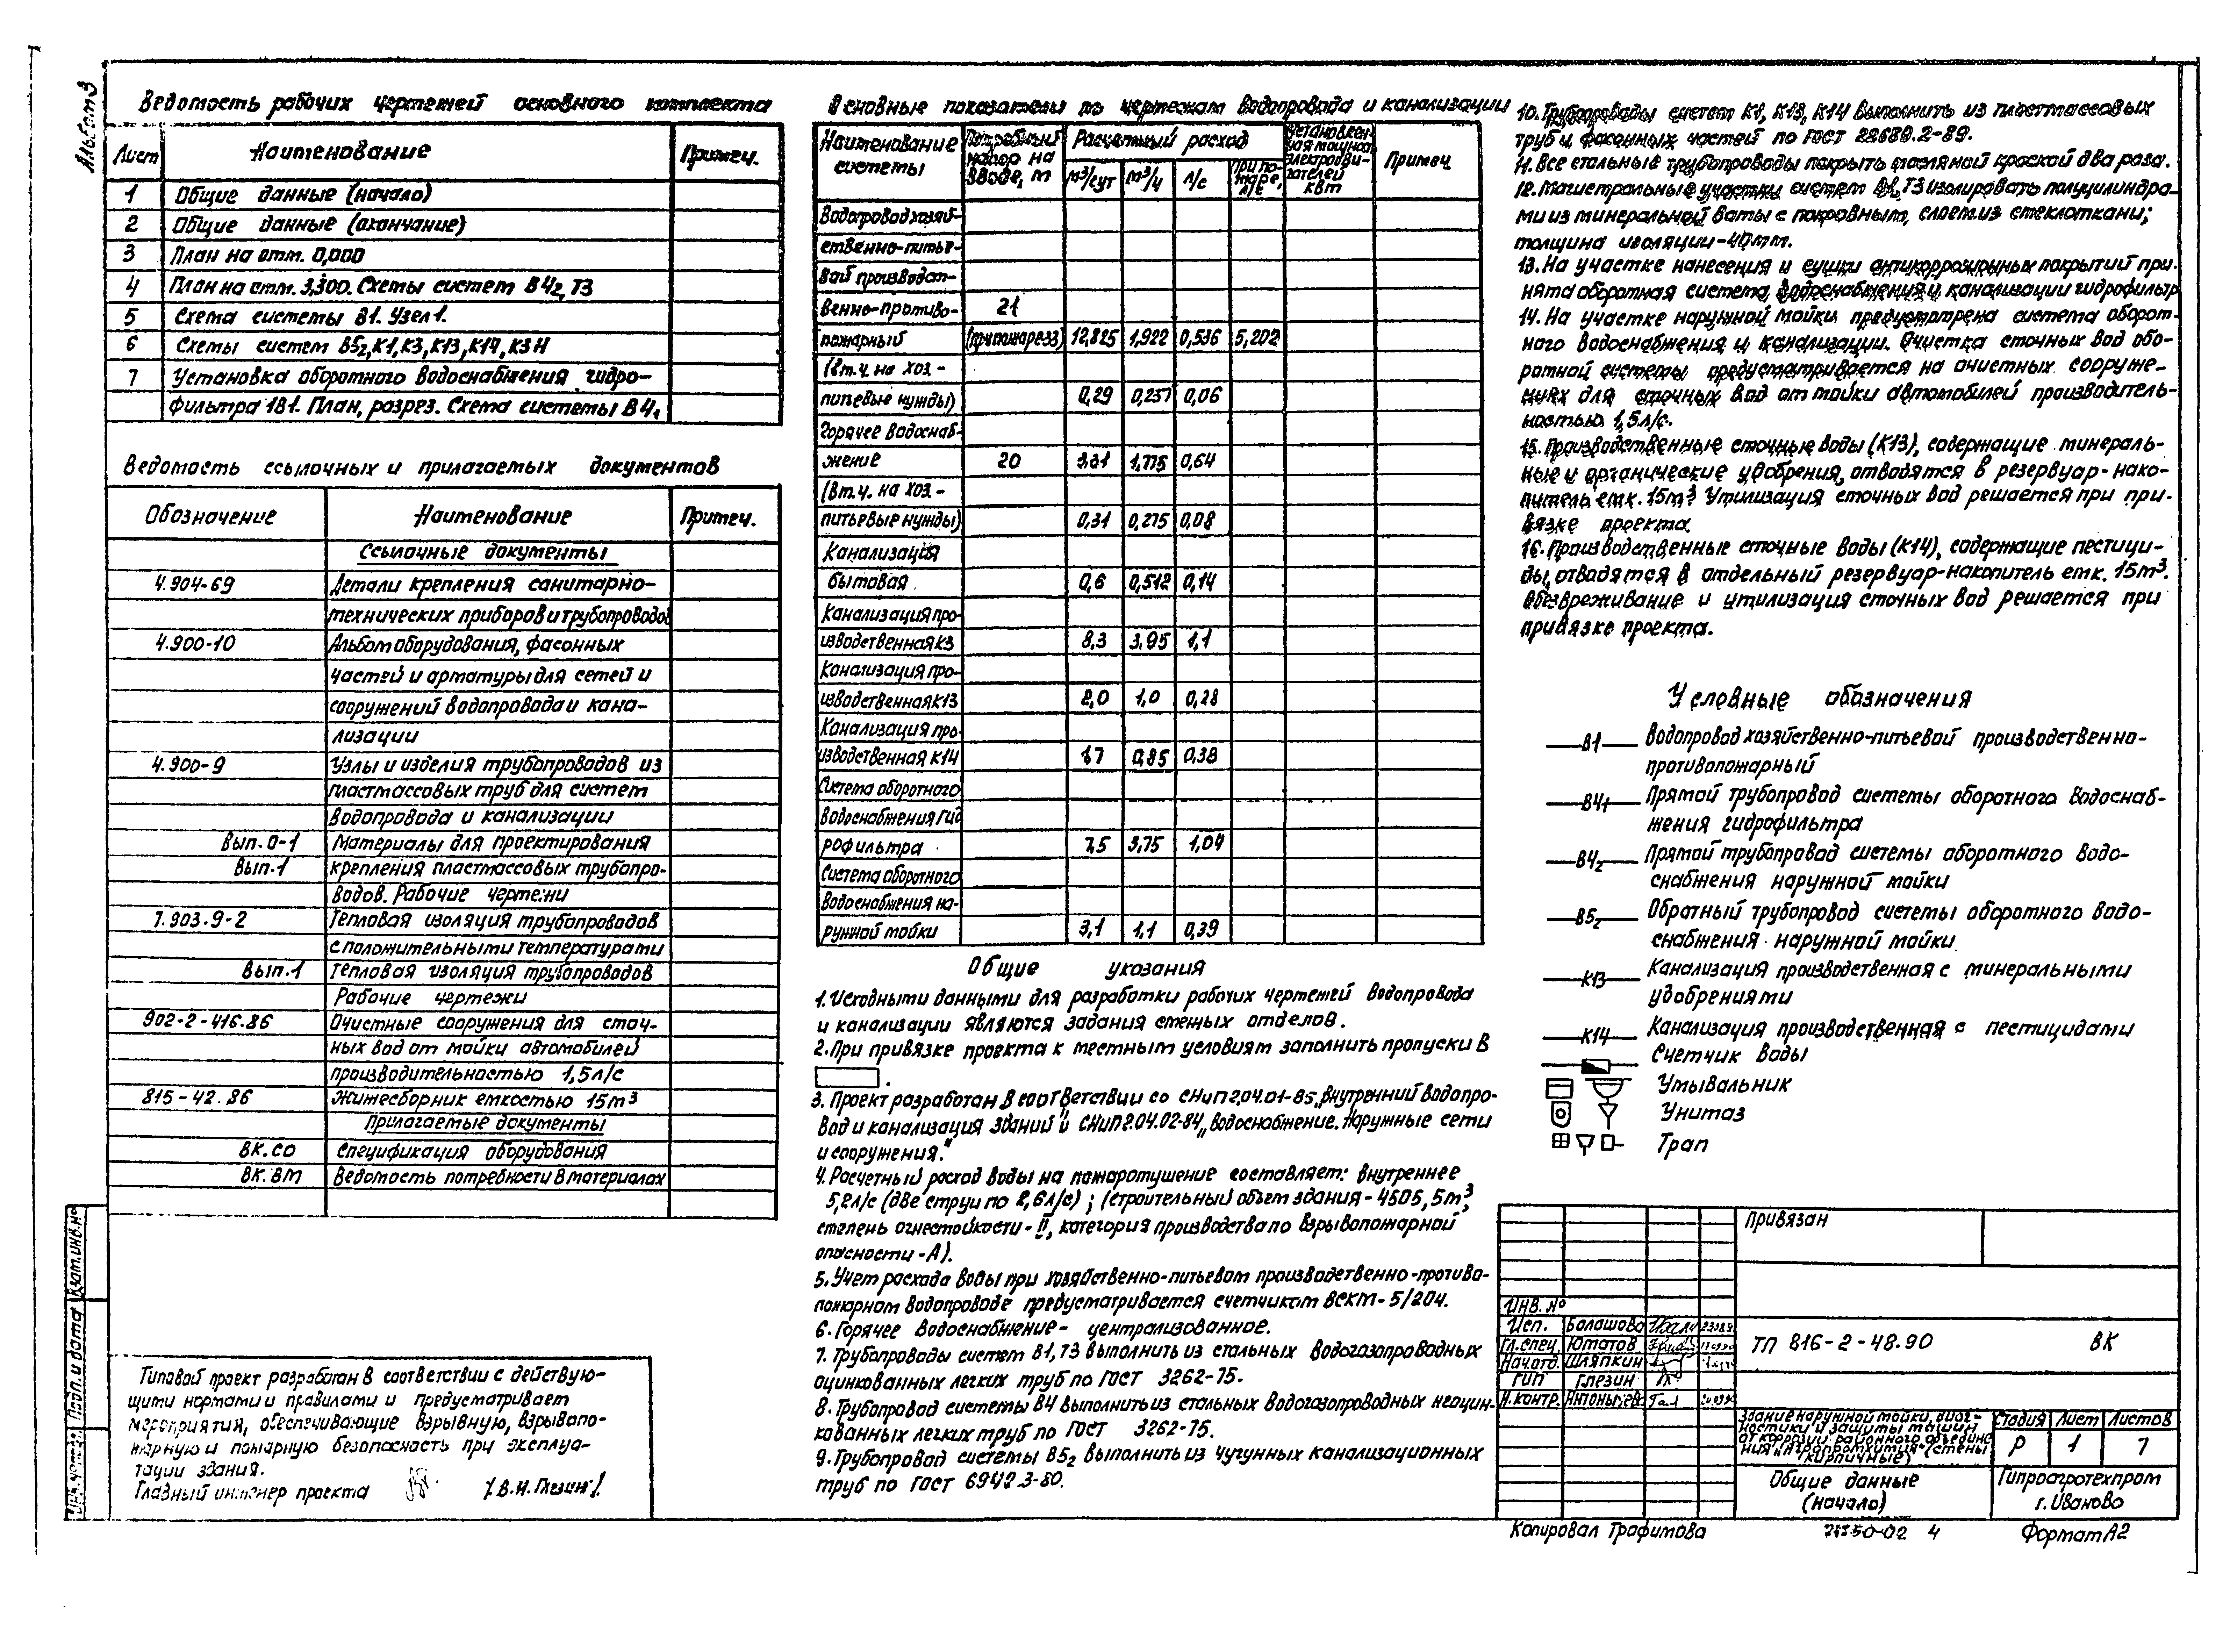 Альбом 3
Ведомость рабочих чертежей основного комплекта
Лист Наименование Примеч.
1 Общие данные (начало)
2 Общие данные (окончание)
3 План на отм. 0,000
4 План на отм. 3,300. Схемы систем В4₂, Т3
5 Схема системы В1. Узел 1.
6 Схемы систем В5₂, К1, К3, К13, К14, К3Н
7 Установка оборотного водоснабжения гидро-
фильтра 1В1. План, разрез. Схема системы В4₁
Ведомость ссылочных и прилагаемых документов
Обозначение Наименование Примеч.
Ссылочные документы
4.904-69 Детали крепления санитарно-
технических приборов и трубопроводов
4.900-10 Альбом оборудования, фасонных
частей и арматуры для сетей и
сооружений водопровода и кана-
лизации
4.900-9 Узлы и изделия трубопроводов из
пластмассовых труб для систем
водопровода и канализации
Вып. 0-1 Материалы для проектирования
Вып. 1 крепления пластмассовых трубопро-
водов. Рабочие чертежи
7.903.9-2 Тепловая изоляция трубопроводов
с положительными температурами
Вып. 1 Тепловая изоляция трубопроводов
Рабочие чертежи
902-2-416.86 Очистные сооружения для сточ-
ных вод от мойки автомобилей
производительностью 1,5 л/с
815-42.86 Жижесборник емкостью 15м³
Прилагаемые документы
ВК.СО Спецификация оборудования
ВК.ВМ Ведомость потребности в материалах
Типовой проект разработан в соответствии с действую-
щими нормами и правилами и предусматривает
мероприятия, обеспечивающие взрывную, взрывопо-
жарную и пожарную безопасность при эксплуа-
тации здания.
Главный инженер проекта /В.И. Глезин/.
Взам. инв. №
Подп. и дата
Основные показатели по чертежам водопровода и канализации
Наименование системы Потребный напор на вводе, м Расчетный расход Установлен-ная мощность электродви-гателей квт Примеч.
м³/сут м³/ч л/с При по-жаре, л/с
Водопровод хозяй-
ственно-питье-
вой производст-
венно-противо- 21
пожарный (при пожаре 33) 12,825 1,922 0,536 5,202
(в т.ч. на хоз.-
питьевые нужды) 0,29 0,237 0,06
Горячее водоснаб-
жение 20 3,31 1,775 0,64
(в т.ч. на хоз.-
питьевые нужды) 0,31 0,275 0,08
Канализация
бытовая 0,6 0,512 0,14
Канализация про-
изводственная К3 8,3 3,95 1,1
Канализация про-
изводственная К13 2,0 1,0 0,28
Канализация про-
изводственная К14 1,7 0,85 0,38
Система оборотного
водоснабжения гид
рофильтра 7,5 3,75 1,04
Система оборотного
водоснабжения на-
ружной мойки 3,1 1,1 0,39
Общие указания
1. Исходными данными для разработки рабочих чертежей водопровода
и канализации являются задания смежых отделов.
2. При привязке проекта к местным условиям заполнить пропуски в
.
3. Проект разработан в соответствии со СНиП 2.04.01-85 „Внутренний водопро-
вод и канализация зданий" и СНиП 2.04.02-84 „Водоснабжение. Наружные сети
и сооружения."
4. Расчетный расход воды на пожаротушение составляет: внутреннее
5,2 л/с (две струи по 2,6 л/с); (строительный объем здания - 4505,5м³,
степень огнестойкости - II, категория производства по взрывопожарной
опасности - А).
5. Учет расхода воды при хозяйственно-питьевом производственно-противо-
пожарном водопроводе предусматривается счетчиком ВСКМ-5/20ч.
6. Горячее водоснабжение - централизованное.
7. Трубопроводы систем В1, Т3 выполнить из стальных водогазопроводных
оцинкованных легких труб по ГОСТ 3262-75.
8. Трубопровод системы В4 выполнить из стальных водогазопроводных неоцин-
кованных легких труб по ГОСТ 3262-75.
9. Трубопровод системы В5₂ выполнить из чугунных канализационных
труб по ГОСТ 6942.3-80.
10. Трубопроводы систем К1, К13, К14 выполнить из пластмассовых
труб и фасонных частей по ГОСТ 22689.2-89.
11. Все стальные трубопроводы покрыть масляной краской два раза.
12. Магистральные участки систем В1, Т3 изолировать полуцилиндра-
ми из минеральной ваты с покровным слоем из стеклоткани;
толщина изоляции - 40мм.
13. На участке нанесения и сушки антикоррозийных покрытий при-
нята оборотная система водоснабжения и канализации гидрофильтр
14. На участке наружной мойки предусмотрена система оборот-
ного водоснабжения и канализации. Очистка сточных вод обо-
ротной системы предусматривается на очистных сооруже-
ниях для сточных вод от мойки автомобилей производитель-
ностью 1,5 л/с.
15. Производственные сточные воды (К13), содержащие минераль-
ные и органические удобрения, отводятся в резервуар-нако-
питель емк. 15м³. Утилизация сточных вод решается при при-
вязке проекта.
16. Производственные сточные воды (К14), содержащие пестици-
ды, отводятся в отдельный резервуар-накопитель емк. 15м³.
Обезвреживание и утилизация сточных вод решается при
привязке проекта.
Условные обозначения
В1 Водопровод хозяйственно-питьевой производственно-
противопожарный
В4₁ Прямой трубопровод системы оборотного водоснаб-
жения гидрофильтра
В4₂ Прямой трубопровод системы оборотного водо-
снабжения наружной мойки
В5₂ Обратный трубопровод системы оборотного водо-
снабжения наружной мойки
К13 Канализация производственная с минеральными
удобрениями
К14 Канализация производственная с пестицидами
Счетчик воды
Умывальник
Унитаз
Трап
Привязан
Инв. №
Исп. Балашова
Гл. спец. Юматов
Нач. отд. Шляпкин
ГИП Глезин
Н. контр.
ТП 816-2-48.90 ВК
Здание наружной мойки, диаг-
ностики и защиты машин
от коррозии районного объедине
ния „Агропромхимия" (стены
кирпичные)
Стадия Лист Листов
Р 1 7
Общие данные
(начало)
Гипроагротехпром
г. Иваново
Копировал Трафимова 4 Формат А2